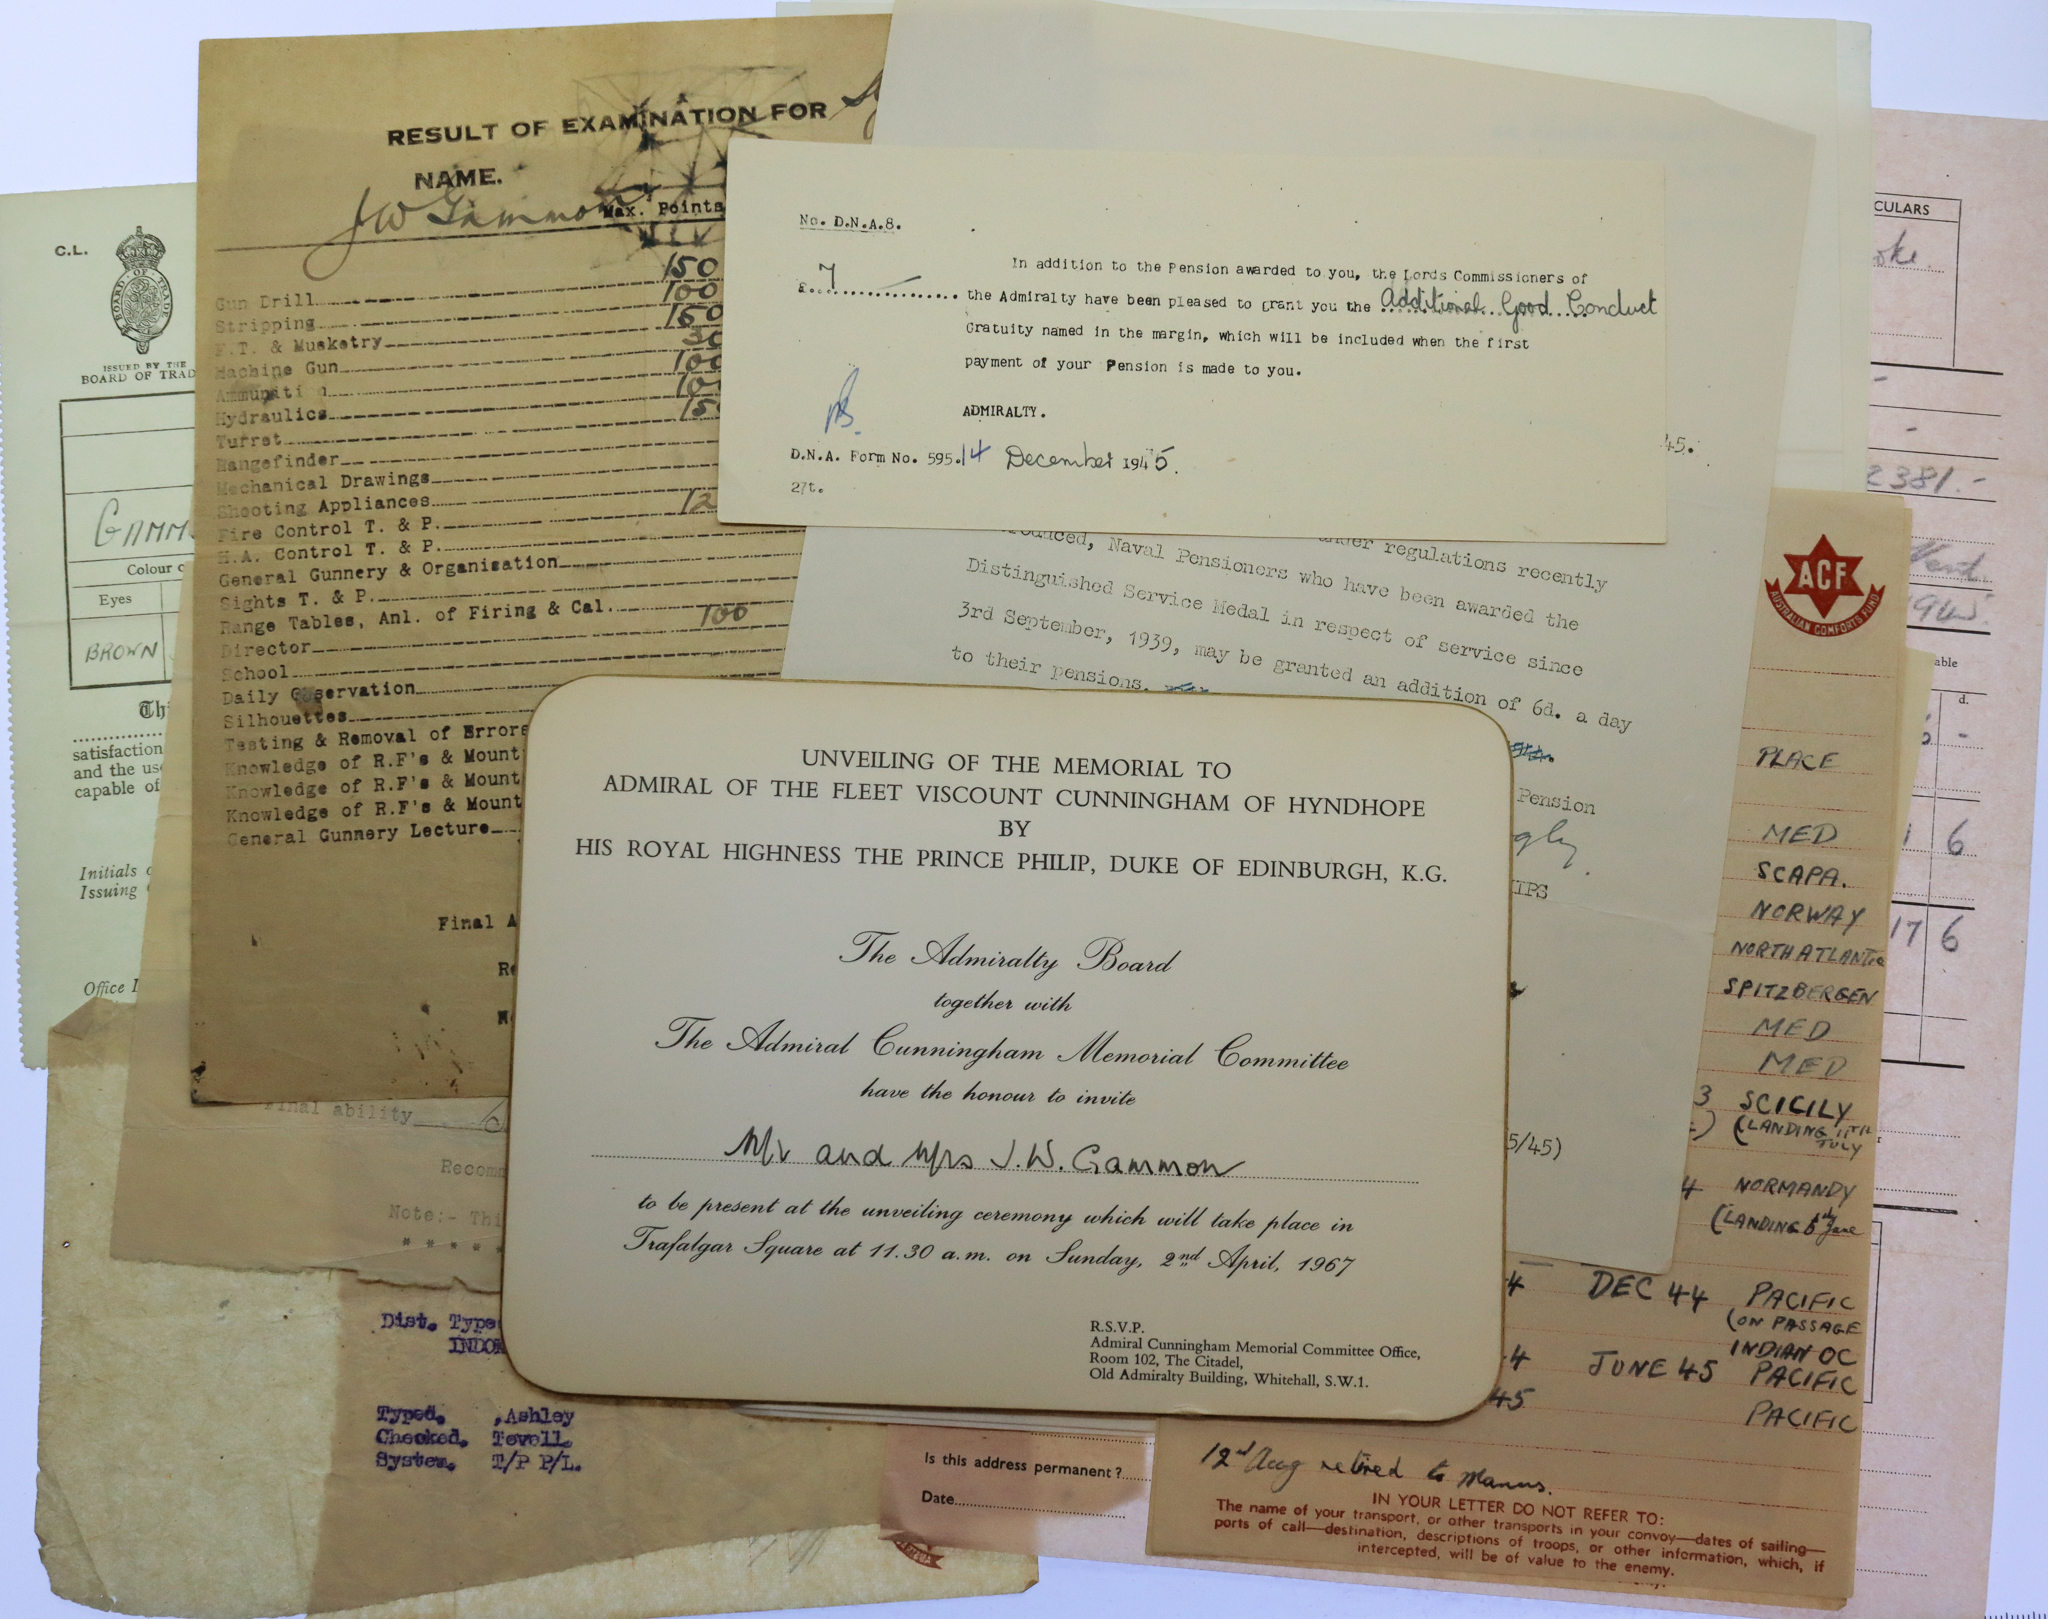 C.L.
BOARD OF TRADE
ISSUED BY THE
BOARD OF TRAD
GAMM
Colour o
Eyes
BROWN
Thi
satisfaction
and the use
capable of
Initials o
Issuing
Office I
RESULT OF EXAMINATION FOR
NAME.
J W Gammon
Max. Points
Gun Drill 150
Stripping 100
F.T. & Musketry 150
Machine Gun
Ammunition 100
Hydraulics
Turret
Rangefinder
Mechanical Drawings
Shooting Appliances
Fire Control T. & P.
H.A. Control T. & P.
General Gunnery & Organisation
Sights T. & P.
Range Tables, Anl. of Firing & Cal.
Director 100
School
Daily Observation
Silhouettes
Testing & Removal of Errors
Knowledge of R.F's & Mount
Knowledge of R.F's & Mount
Knowledge of R.F's & Mount
General Gunnery Lecture
Final A
Final ability
Recom
Note:- Thi
* * * * *
Dist. Type
INDOM
Typed. ,Ashley
Checked. Tovell.
System. T/P P/L.
No. D.N.A.8.
£ 7
In addition to the Pension awarded to you, the Lords Commissioners of
the Admiralty have been pleased to grant you the Additional Good Conduct
Gratuity named in the margin, which will be included when the first
payment of your Pension is made to you.
ADMIRALTY.
D.N.A. Form No. 595. 14 December 1945.
27t.
45.
under regulations recently
Naval Pensioners who have been awarded the
Distinguished Service Medal in respect of service since
3rd September, 1939, may be granted an addition of 6d. a day
to their pensions.
Pension
5/45)
UNVEILING OF THE MEMORIAL TO
ADMIRAL OF THE FLEET VISCOUNT CUNNINGHAM OF HYNDHOPE
BY
HIS ROYAL HIGHNESS THE PRINCE PHILIP, DUKE OF EDINBURGH, K.G.
The Admiralty Board
together with
The Admiral Cunningham Memorial Committee
have the honour to invite
Mr and Mrs J.W. Gammon
to be present at the unveiling ceremony which will take place in
Trafalgar Square at 11.30 a.m. on Sunday, 2nd April, 1967
R.S.V.P.
Admiral Cunningham Memorial Committee Office,
Room 102, The Citadel,
Old Admiralty Building, Whitehall, S.W.1.
CULARS
2381.-
able
d.
6
17 6
ACF
AUSTRALIAN COMFORTS FUND
PLACE
MED
SCAPA.
NORWAY
NORTH ATLANTIC
SPITZBERGEN
MED
MED
3 SCICILY
(LANDING 11TH
JULY
4 NORMANDY
(LANDING 6th June
4 DEC 44 PACIFIC
(ON PASSAGE
INDIAN OC
4 JUNE 45 PACIFIC
45 PACIFIC
12nd Aug retired to Manus.
IN YOUR LETTER DO NOT REFER TO:
The name of your transport, or other transports in your convoy—dates of sailing—
ports of call—destination, descriptions of troops, or other information, which, if
intercepted, will be of value to the enemy.
Is this address permanent?
Date